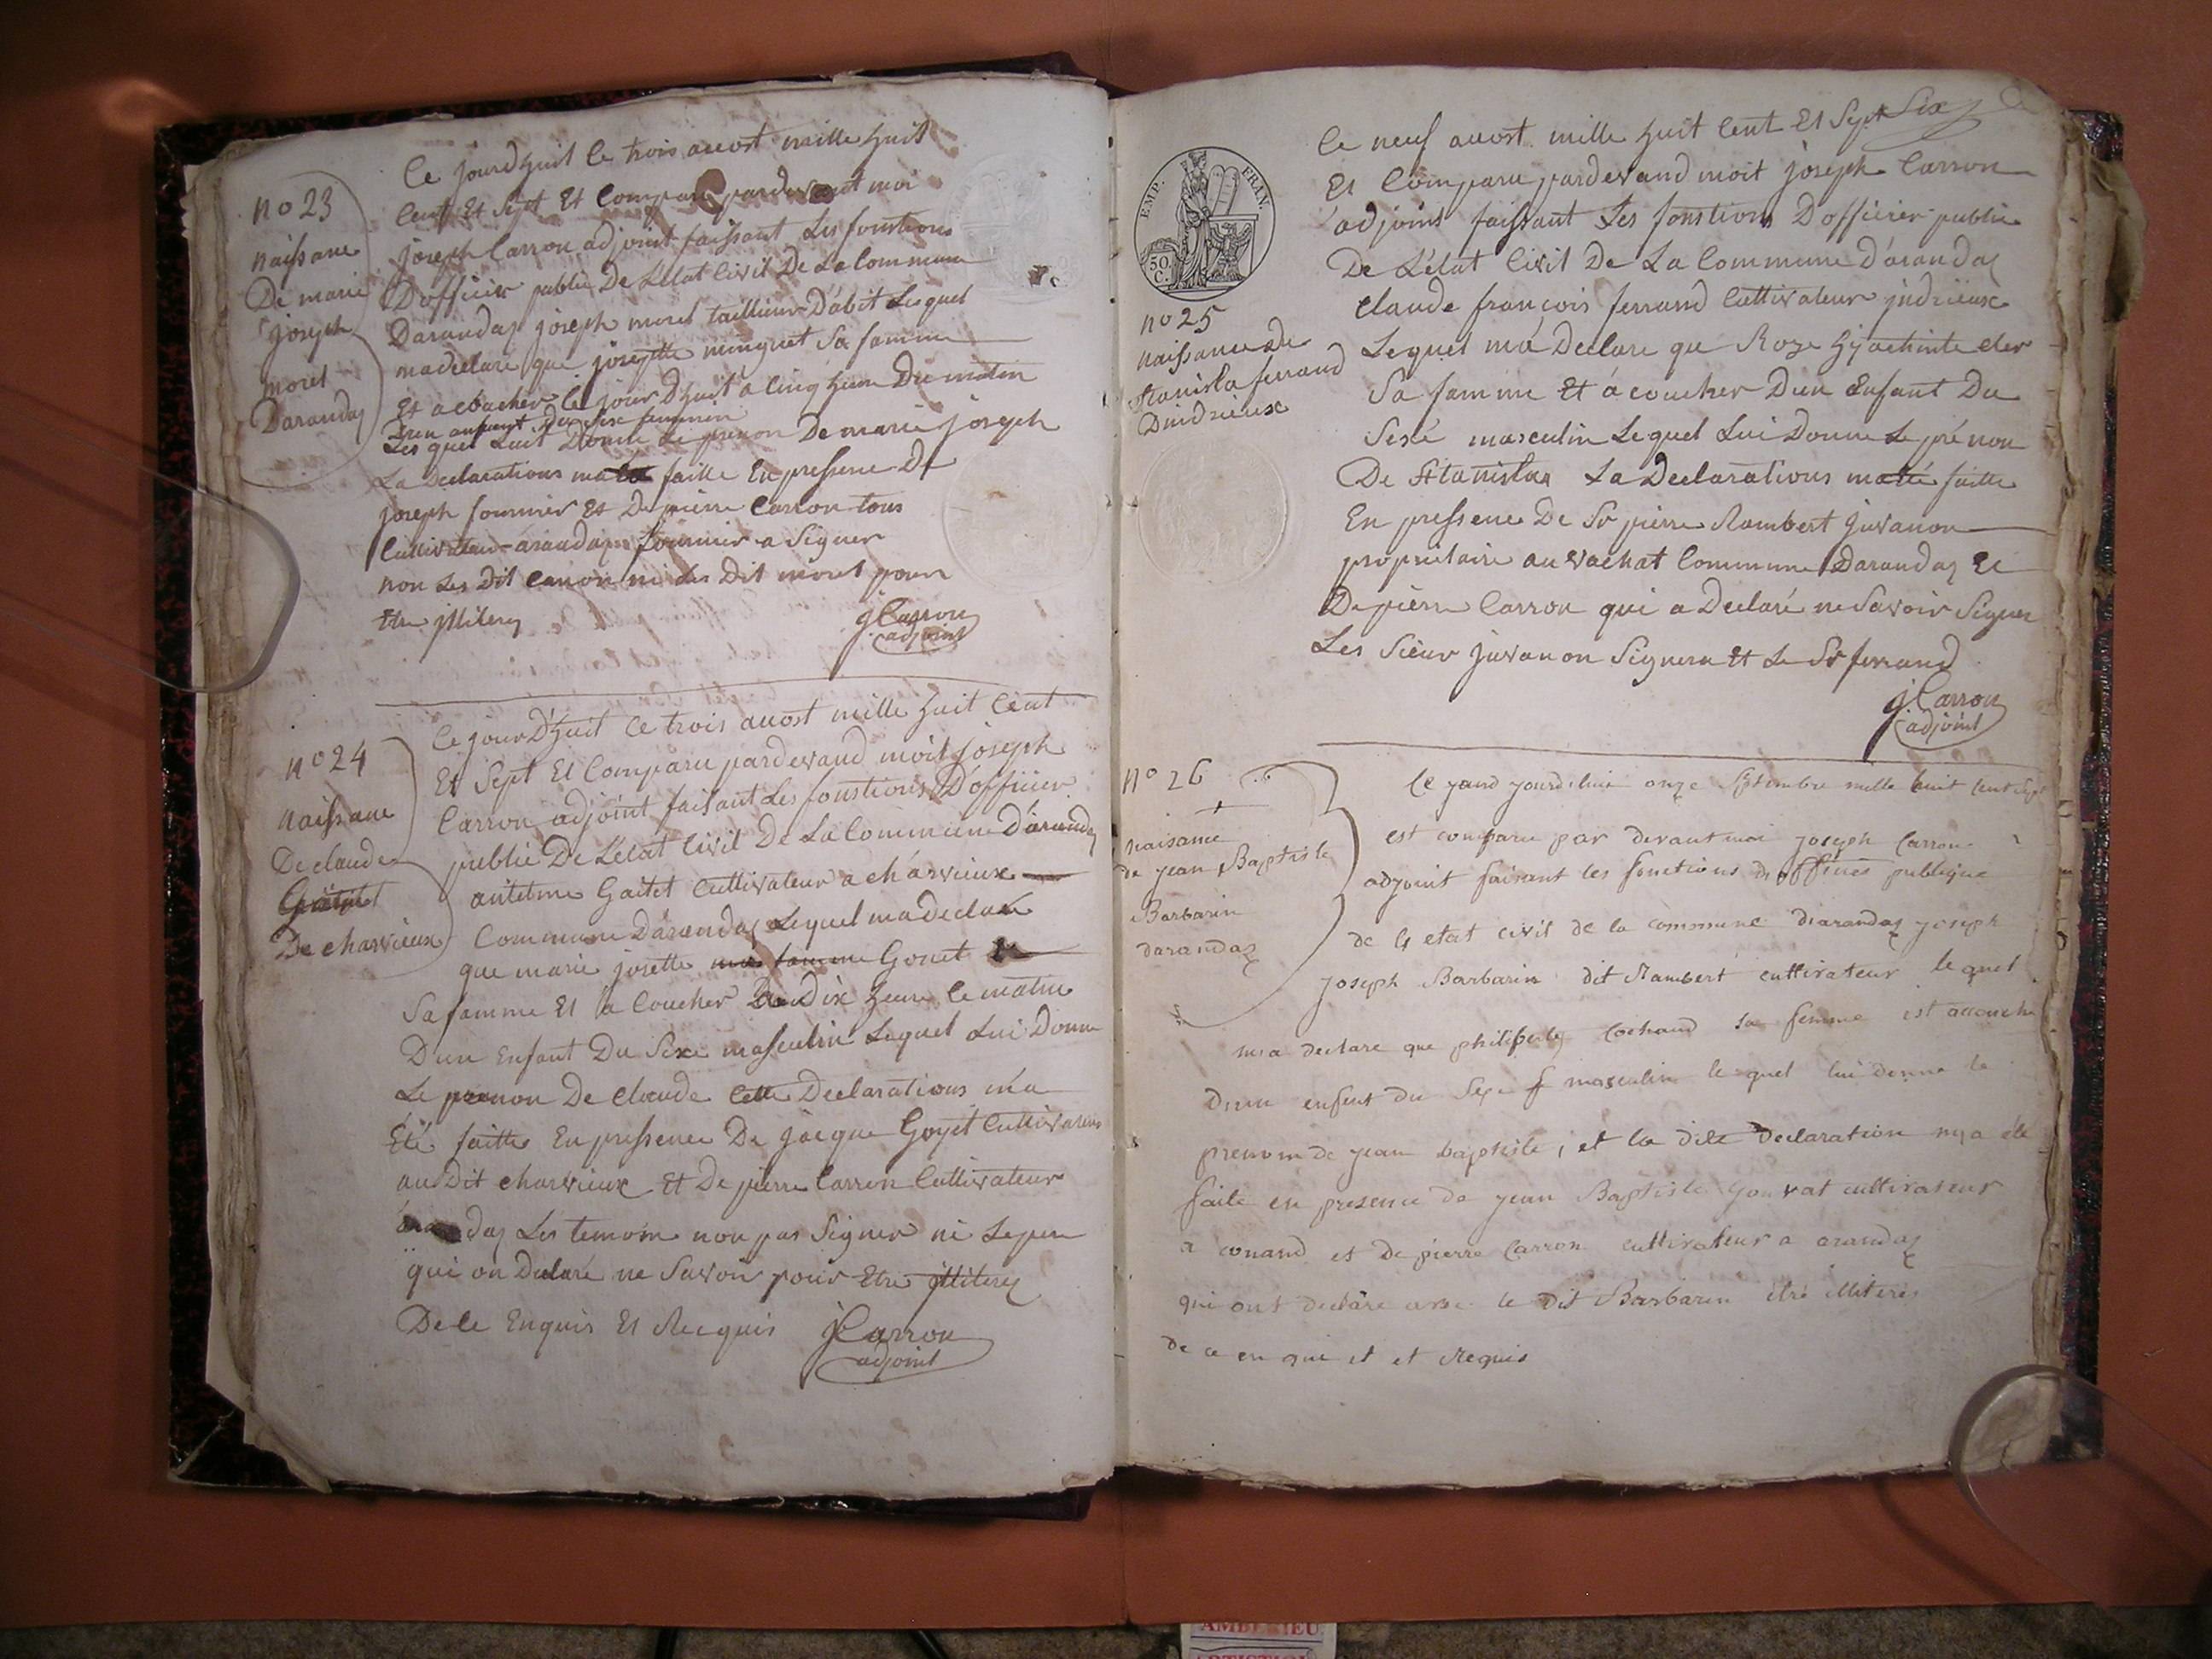 no 23
naissane
De marie
joseph
morel
Darandas
Ce jourdhuit le trois auost mille huit
Cent Et Sept Et Comparu pardevant moi
joseph Carron adjoint faissant Les fonstions
Dofficier public De Létat Civil De La Commune
Darandas joseph morel taillieur Dabit Lequel
madeclare que josephte minguet Sa famme
Et acoucher Ce jour Dhuit a Cinq heure Du matin
Dun anfant Du Sexe feminin
Lesquel Luit Donne Le prenon De marie joseph
La Declarations ma faitte En pressene De
joseph fournier Et De pierre Carron tous
Cultivateur arandas fournier a Signer
non Les Dit Carron ni Les Dit morel pour
Etre jlliterez
jCarron
adjoint
no 24
naissane
De claude
Gaitet
De charvieux
Ce jour D'huit Ce trois auost mille huit Cent
Et Sept Et Comparu pardevand moit joseph
Carron adjoint faisant Les fonstions D'officier
public De Létat Civil De La Commune D'arandas
antelme Gaitet Cultivateur a charvieux
Commune Darandas Lequel madeclare
que marie josette ma famme Gonet
Sa famme Et a Coucher a Dix heure Ce matin
Dun Enfant Du Sexe masculin Lequel Lui Donne
Le prenon De Claude Cette Declarations ma
Eté faitte En pressence De jacque Goyet Cultivateur
au Dit charvieux Et De pierre Carron Cultivateur
arandas Les temoin non pas Signer ni Le pere
qui on Declaré ne Savoir pour Etre jlliterez
De Ce Enquis Et Recquis
jCarron
adjoint
Six
EMP. FRAN.
50 C.
no 25
naissance de
Stanisla ferrand
Dindrieux
Ce neuf auost mille huit Cent Et Sept
Et Comparu pardevand moit joseph Carron
adjoint faissant Les fonstions D officier public
De Létat Civil De La Commune D'arandas
claude françois ferrand Cultivateur jndrieux
Lequel má Declare que Roze hyachinte cler
Sa famme Et á coucher Dun Enfant Du
Sexé masculin Lequel Lui Donne Le prénon
De Stanislas La Declarations ma été faitte
En pressene De Sr pierre Rambert juvanon
proprietaire au vachat Commune Darandas Et
De pierre Carron qui a Declaré ne Savoir Signer
Les Sieur juvanon Signera Et Le Sr ferrand
jCarron
adjoint
no 26
naisance
de jean Baptiste
Barbarin
darandaz
Ce jourd'hui onze Septembre mille huit cent sept
est comparu par devant moi joseph Carron
adjoint faisant les fonctions de officier publique
de l etat civil de la commune d'arandaz joseph
joseph Barbarin dit Rambert cultivateur lequel
m'a declare que Cochand sa femme est accouche
d'un enfent du Sexe masculin le quel lui donne le
prenom de jean baptiste, et la dite declaration m'a été
faite en presence de jean Baptiste Gouvat cultivateur
a conand et de pierre Carron cultivateur a arandaz
qui ont declare avec le dit Barbarin être illiteres
de ce en qui et et requis
AMBERIEU